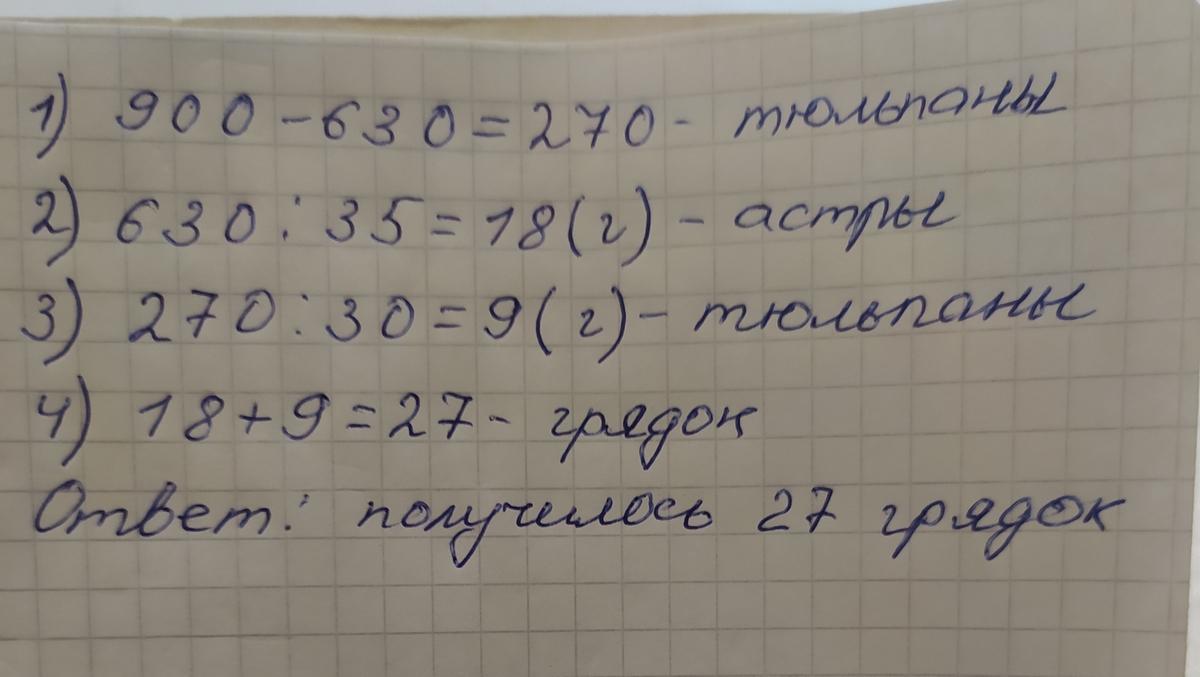 1) 900 - 630 = 270 - тюльпаны
2) 630 : 35 = 18 (г) - астры
3) 270 : 30 = 9 (г) - тюльпаны
4) 18 + 9 = 27 - грядок
Ответ: получилось 27 грядок